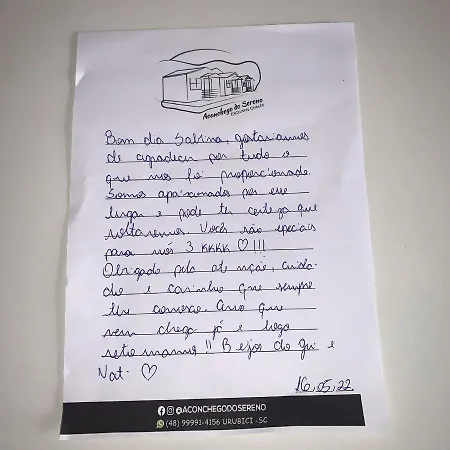 Aconchego do Sereno
EXCLUSIVE CHALÉS
Bom dia Sabrina, gostaríamos
de agradecer por tudo o
que nos foi proporcionado.
Somos apaixonados por esse
lugar e pode ter certeza que
voltaremos. Vocês são especiais
para nós 3 KKKK ♡!!!
Obrigado pela atenção, cuida-
do e carinho que sempre
tem conosco. Ano que
vem chega já e logo
retornamos!! Beijos do Gui e
Nat. ♡
16.05.22
@ACONCHEGODOSERENO
(48) 99991-4156 URUBICI - SC